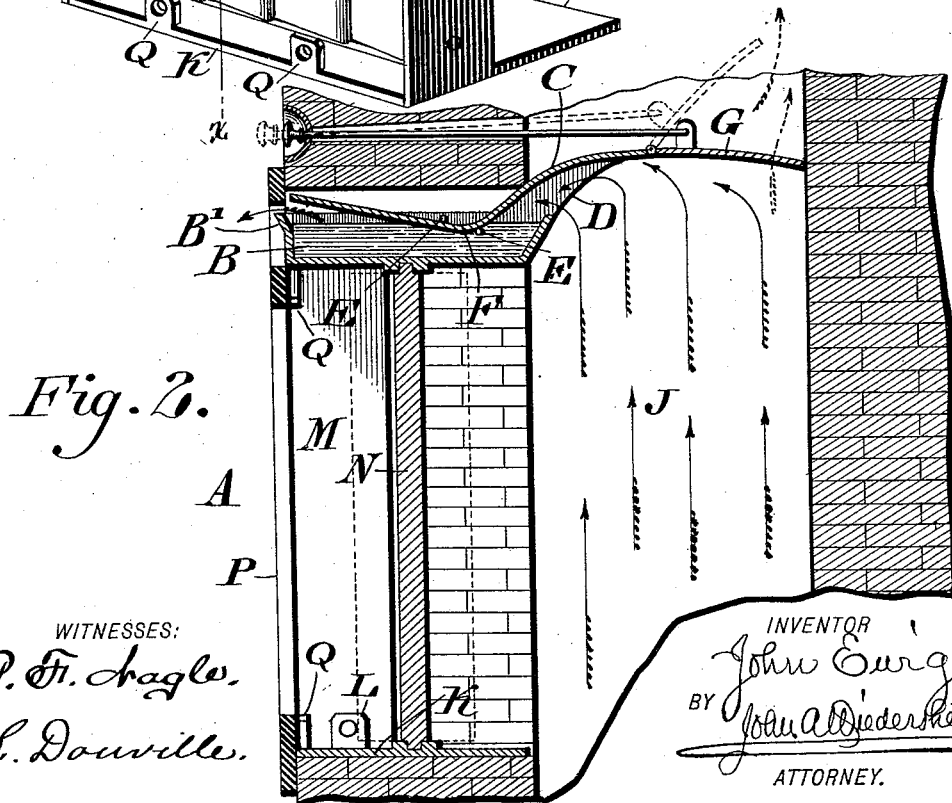 Q K Q
x
C
G
B¹
D
B
E F E
Q
Fig. 2.
J
M
N
A
P
WITNESSES:
P. F. Nagle.
L. Douville.
Q L K
INVENTOR
John
BY
John A Wiedershe
ATTORNEY.